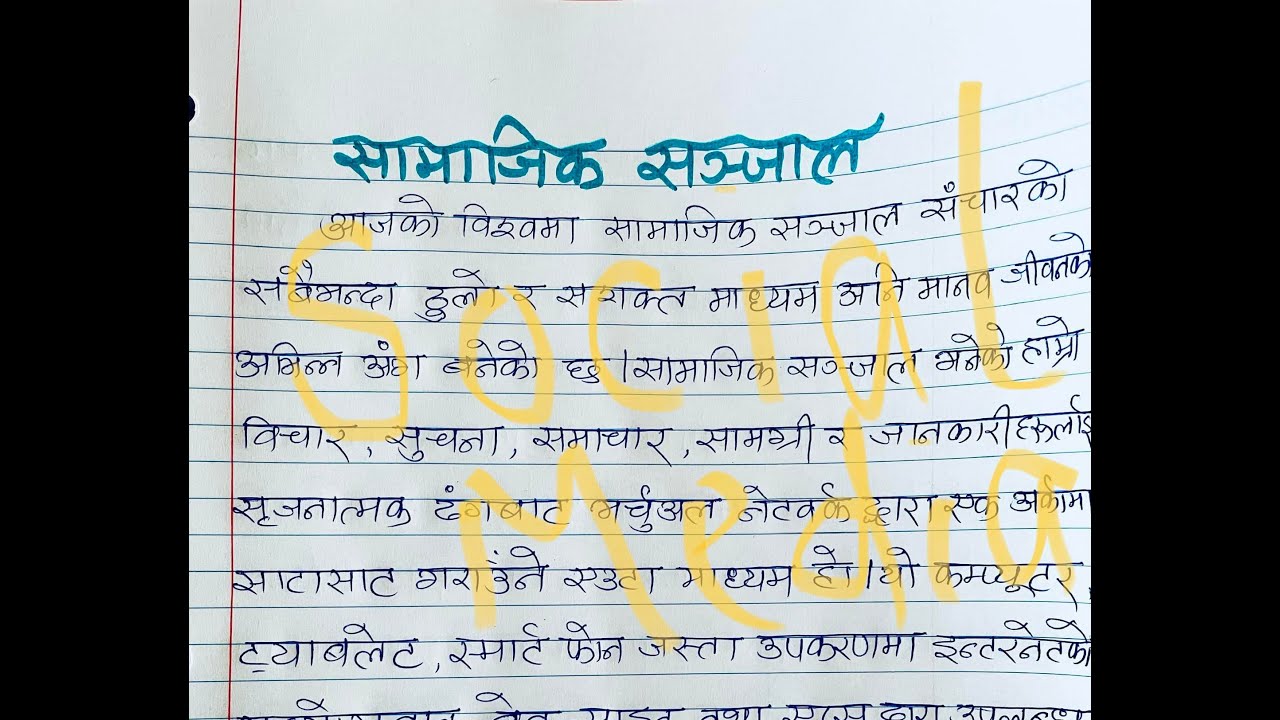 सामाजिक सञ्जाल
आजको विश्वमा सामाजिक सञ्जाल संँचारको
सबैभन्दा ठुलो र सशक्त माध्यम अनि मानव जीवनको
अभिन्न अंग बनेको छ । सामाजिक सञ्जाल भनेको हाम्रो
विचार, सुचना, समाचार, सामग्री र जानकारीहरूलाई
सृजनात्मक ढंगबाट भर्चुअल नेटवर्क द्वारा एक अर्कामा
साटासाट गराउँने एउटा माध्यम हो । यो कम्प्यूटर,
ट्याबलेट, स्मार्ट फोन जस्ता उपकरणमा इन्टरनेटको
तथा द्वारा उपलब्ध
Social
Media